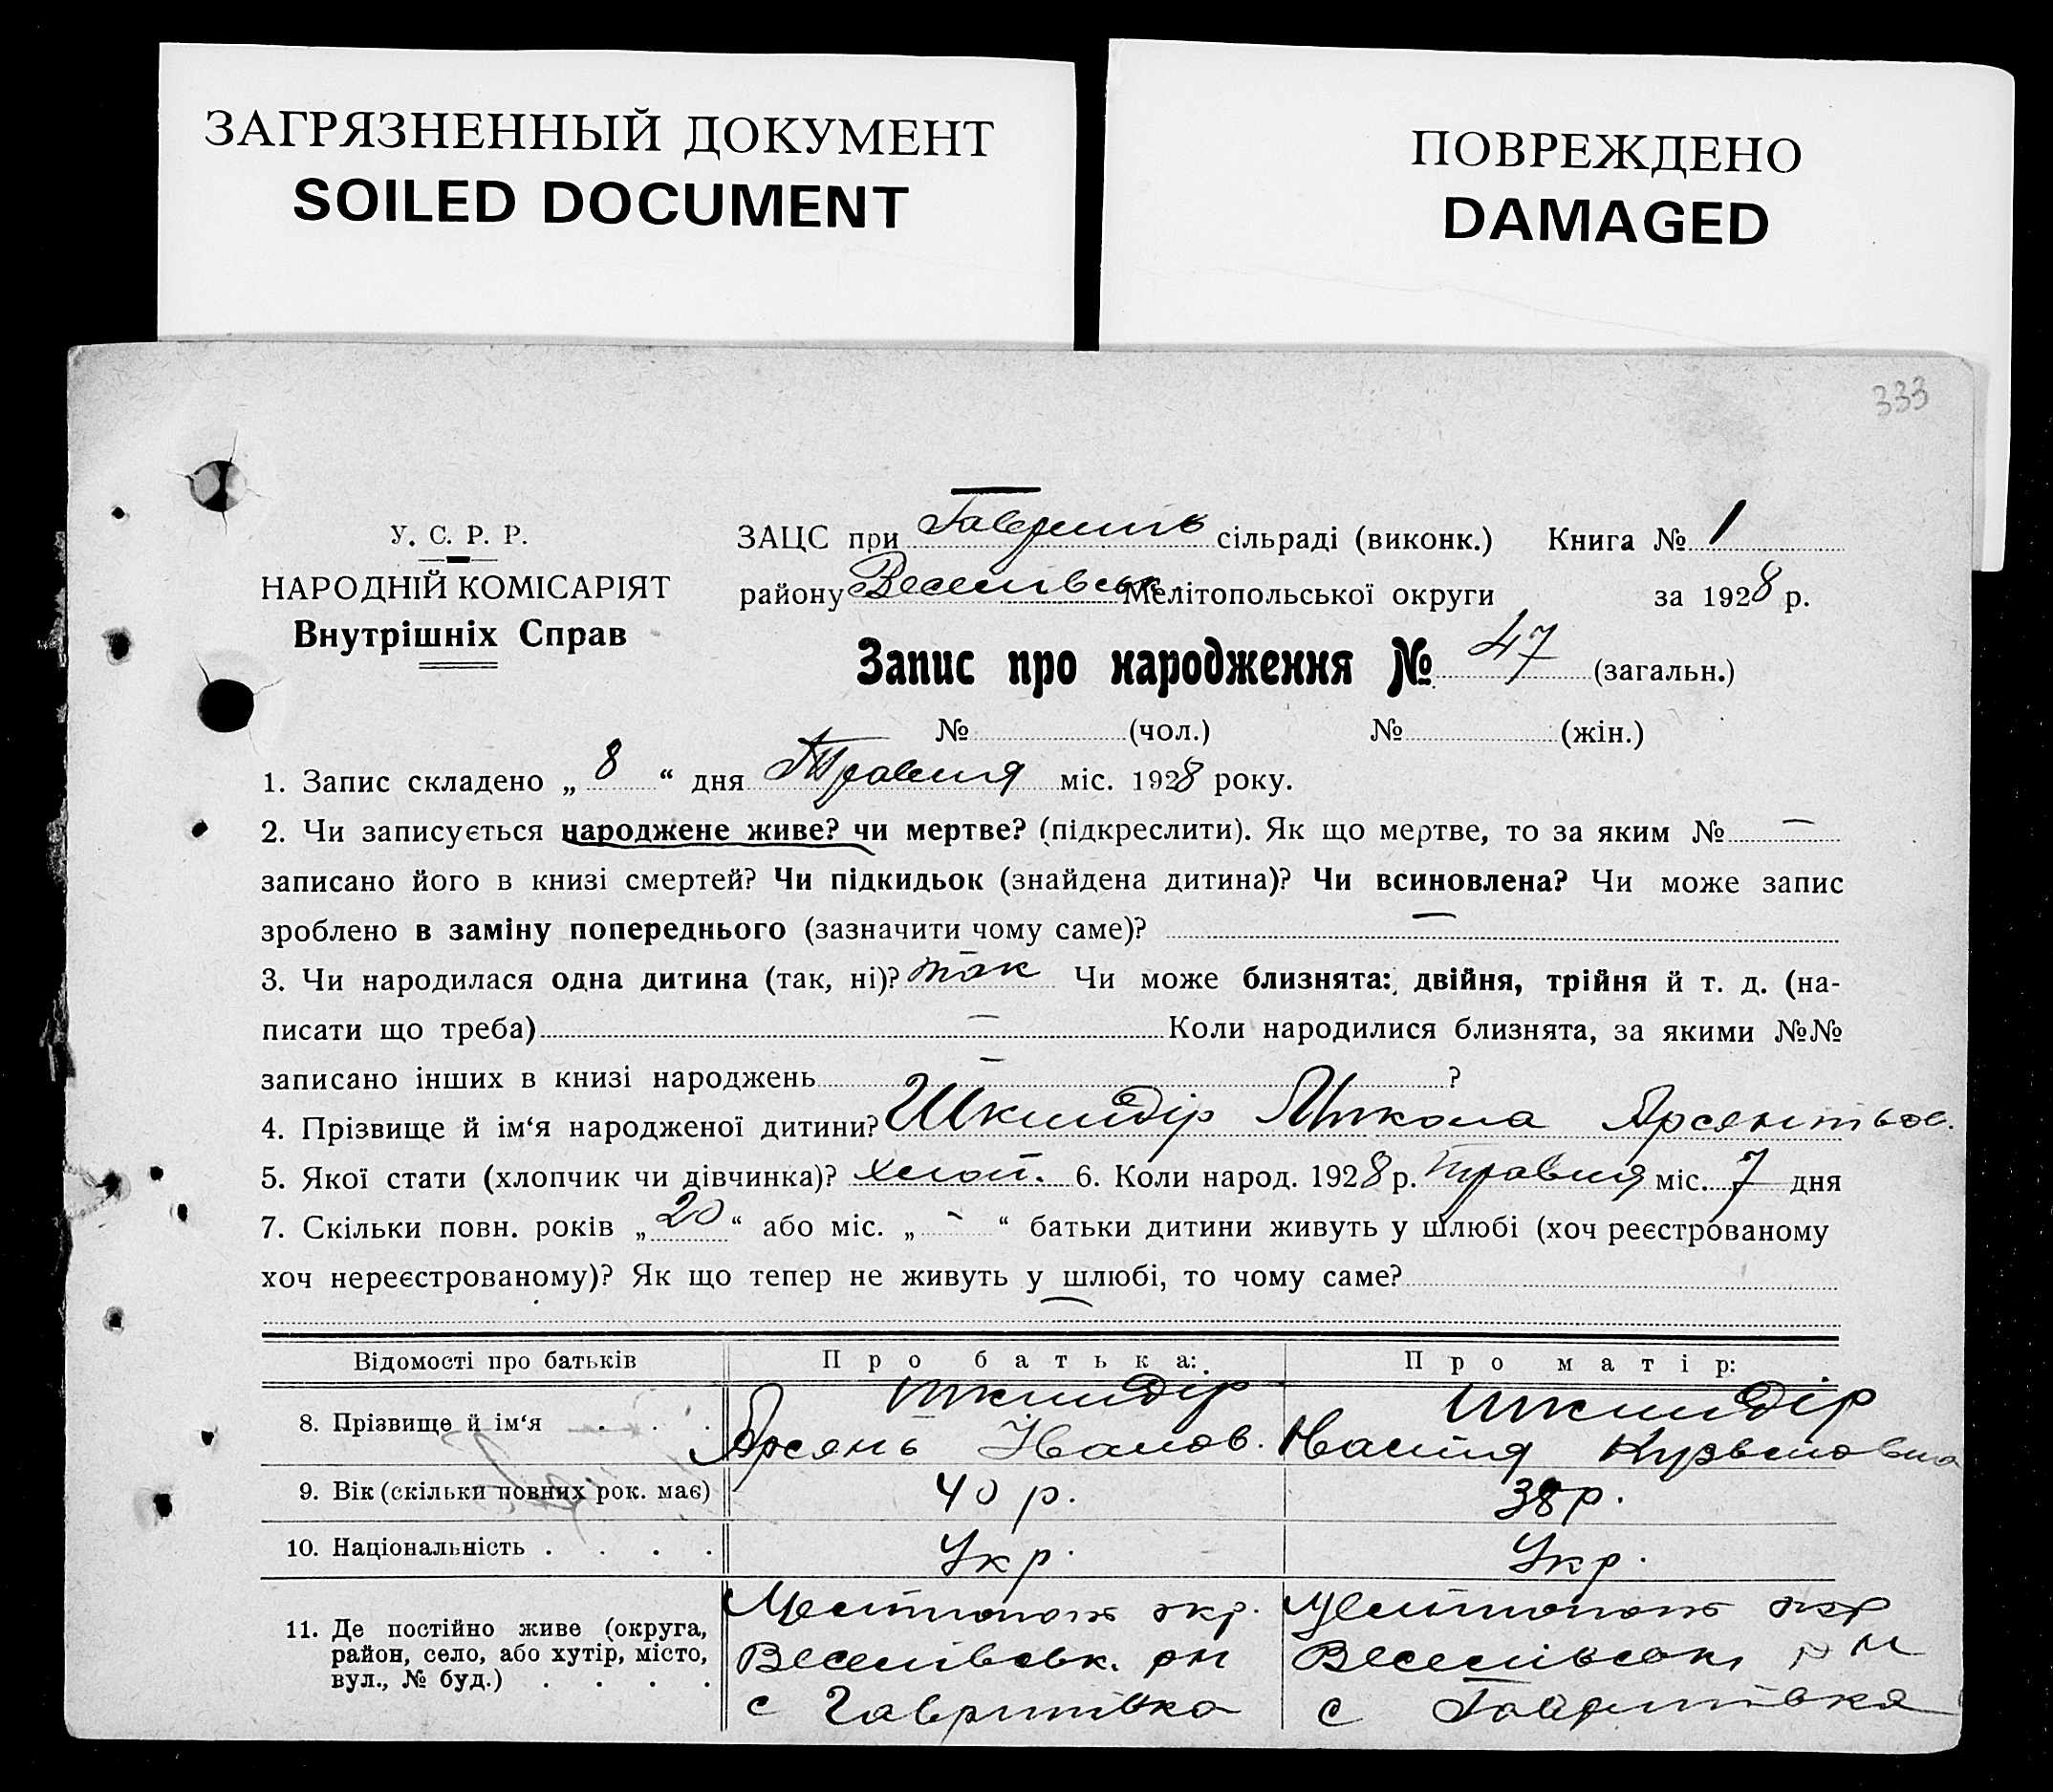 ЗАГРЯЗНЕННЫЙ ДОКУМЕНТ
SOILED DOCUMENT
ПОВРЕЖДЕНО
DAMAGED
333
У. С. Р. Р.
НАРОДНІЙ КОМІСАРІЯТ
Внутрішніх Справ
ЗАЦС при сільраді (виконк.) Книга № 1
району Веселівськ. Мелітопольської округи за 1928 р.
Запис про народження № 47 (загальн.)
№ (чол.) № (жін.)
1. Запис складено „ 8 “ дня Травня міс. 1928 року.
2. Чи записується народжене живе? чи мертве? (підкреслити). Як що мертве, то за яким № —
записано його в книзі смертей? Чи підкидьок (знайдена дитина)? Чи всиновлена? Чи може запис
зроблено в заміну попереднього (зазначити чому саме)? —
3. Чи народилася одна дитина (так, ні)? так Чи може близнята: двійня, трійня й т. д. (на-
писати що треба) — Коли народилися близнята, за якими №№
записано інших в книзі народжень — ?
4. Прізвище й ім‘я народженої дитини? Шкиндір Микола Арсентьов.
5. Якої стати (хлопчик чи дівчинка)? хлоп. 6. Коли народ. 1928 р. травня міс. 7 дня
7. Скільки повн. років „ 20 “ або міс. „ - “ батьки дитини живуть у шлюбі (хоч реєстрованому
хоч нереєстрованому)? Як що тепер не живуть у шлюбі, то чому саме?
—
Відомості про батьків Про батька: Про матір:
8. Прізвище й ім‘я . . . Шкиндір Арсень Іванов. Шкиндір Настя Кузьмовна
9. Вік (скільки повних рок. має) 40 р. 38 р.
10. Національність . . . . Укр. Укр.
11. Де постійно живе (округа, район, село, або хутір, місто, вул., № буд.) . . . .
Мелітопольськ окр. Мелітопольськ окр
Веселівськ. рн Веселівськ, рн
с Гаврилівка с Гаврилівка